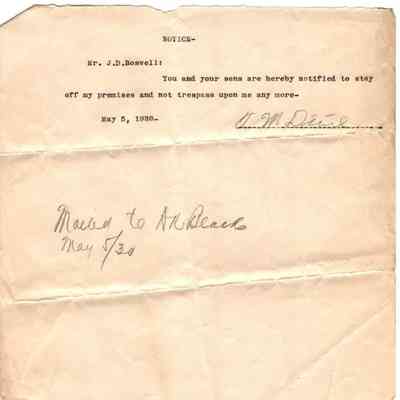 NOTICE-
Mr. J.D.Boswell:
You and your sons are hereby notified to stay
off my premises and not trespass upon me any more-
May 5, 1930-
Mailed to
May 5/30